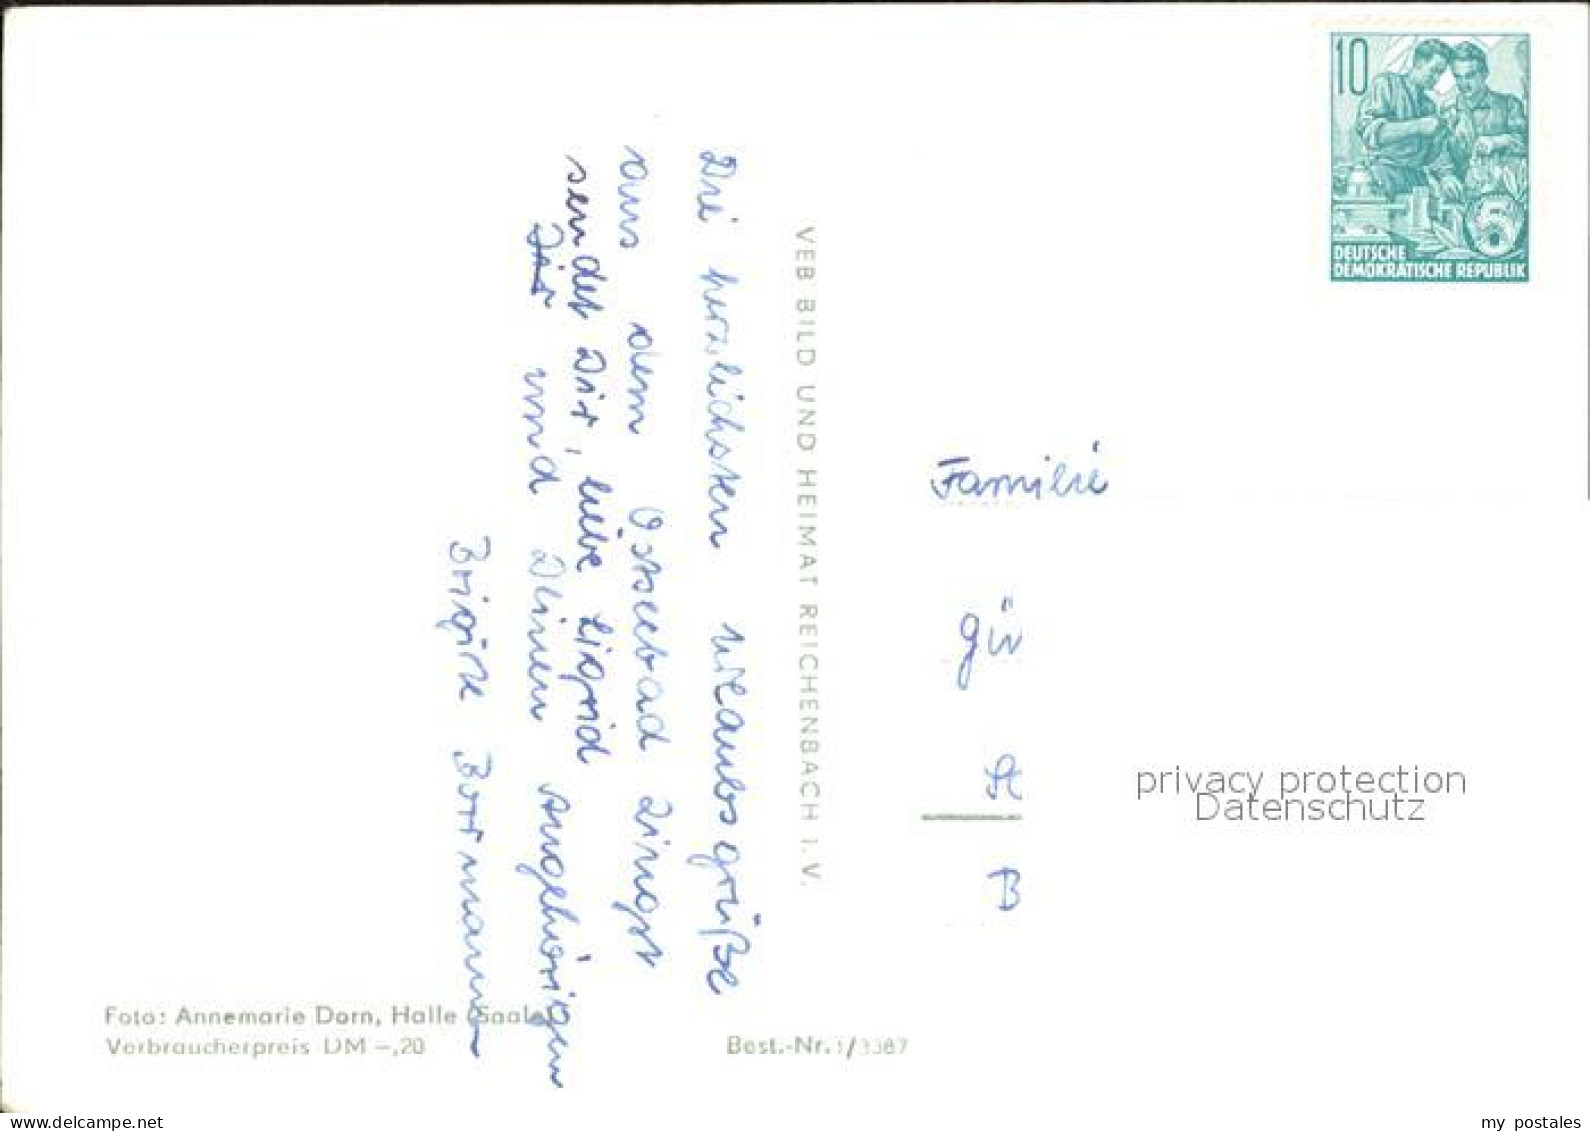 Die herzlichsten Urlaubsgrüße
aus dem Ostseebad Zingst
sendet Dir, liebe Sigrid
Dir und Deinen Angehörigen
Brigitte Borrmann
VEB BILD UND HEIMAT REICHENBACH I. V.
10
5
DEUTSCHE
DEMOKRATISCHE REPUBLIK
Familie
Gü
St
B
privacy protection
Datenschutz
Foto: Annemarie Dorn, Halle (Saale)
Verbraucherpreis DM –,20
Best.-Nr. 1/3387
www.delcampe.net
my_postales